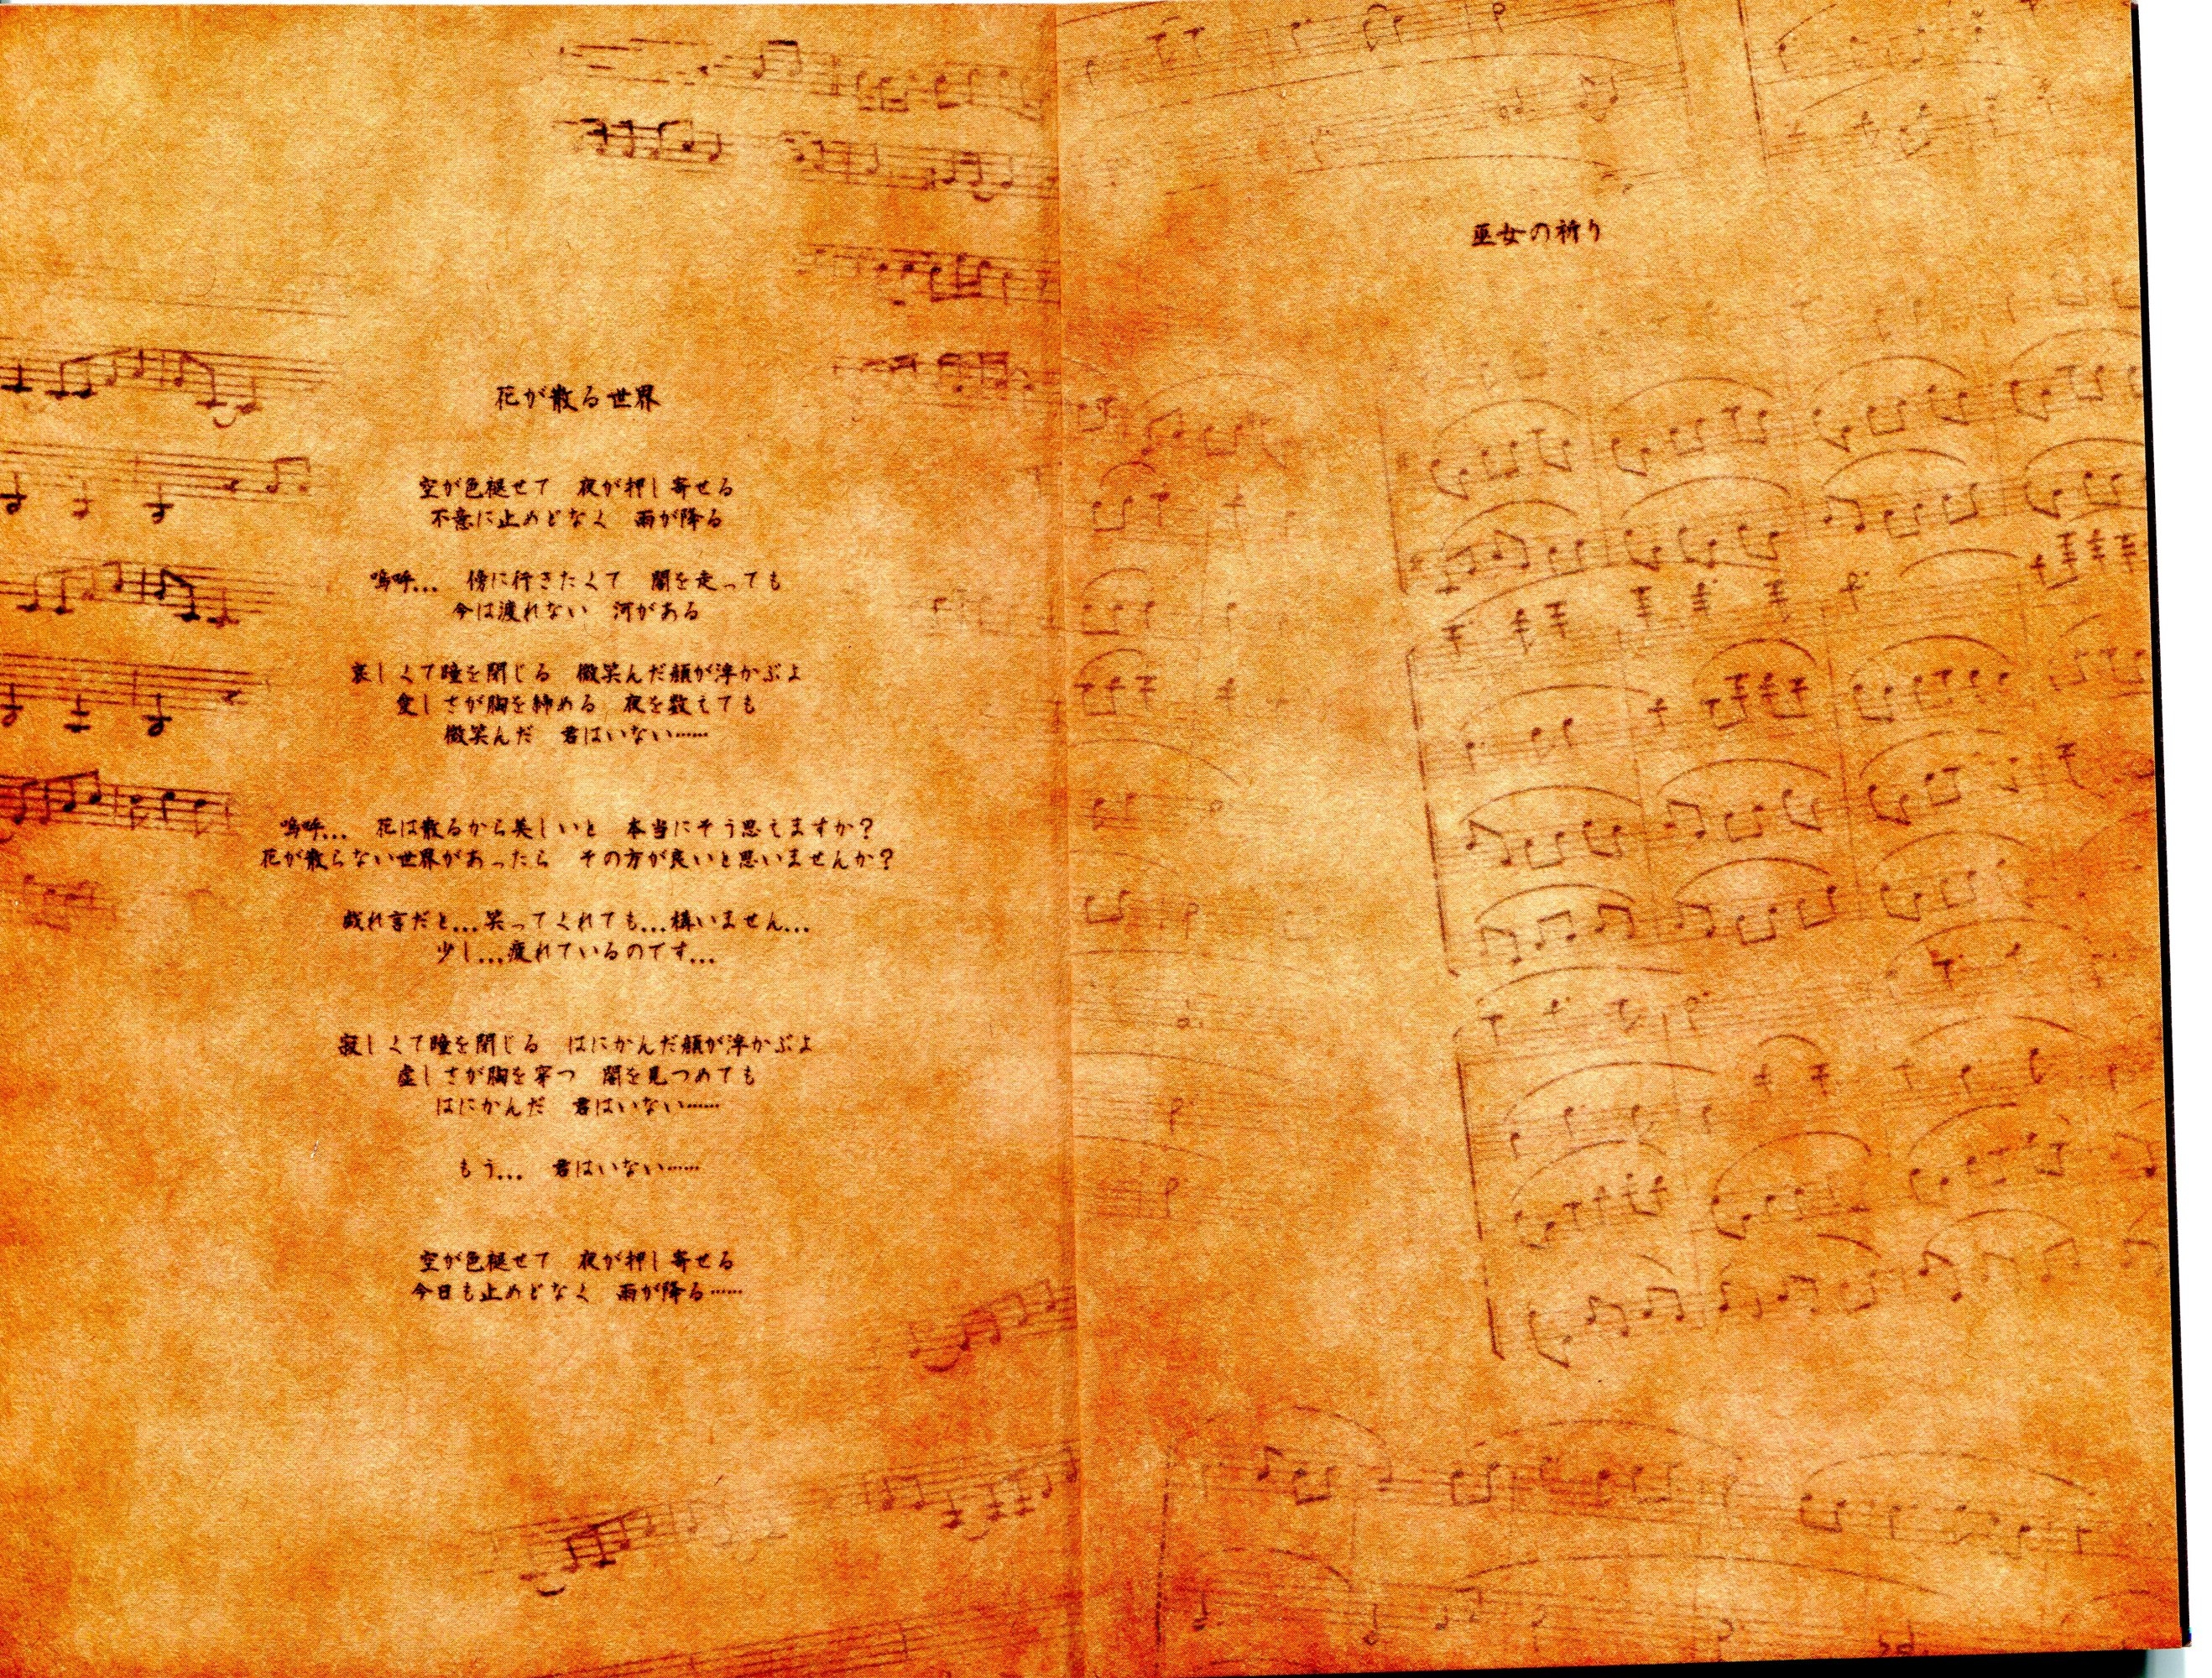 花が散る世界
空が色褪せて　夜が押し寄せる
不意に止めどなく　雨が降る
嗚呼...　傍に行きたくて　闇を走っても
今は渡れない　河がある
哀しくて瞳を閉じる　微笑んだ顔が浮かぶよ
愛しさが胸を締める　夜を数えても
微笑んだ　君はいない……
嗚呼...　花は散るから美しいと　本当にそう思えますか？
花が散らない世界があったら　その方が良いと思いませんか？
戯れ言だと...笑ってくれても...構いません...
少し...疲れているのです...
寂しくて瞳を閉じる　はにかんだ顔が浮かぶよ
虚しさが胸を穿つ　闇を見つめても
はにかんだ　君はいない……
もう...　君はいない……
空が色褪せて　夜が押し寄せる
今日も止めどなく　雨が降る……
巫女の祈り